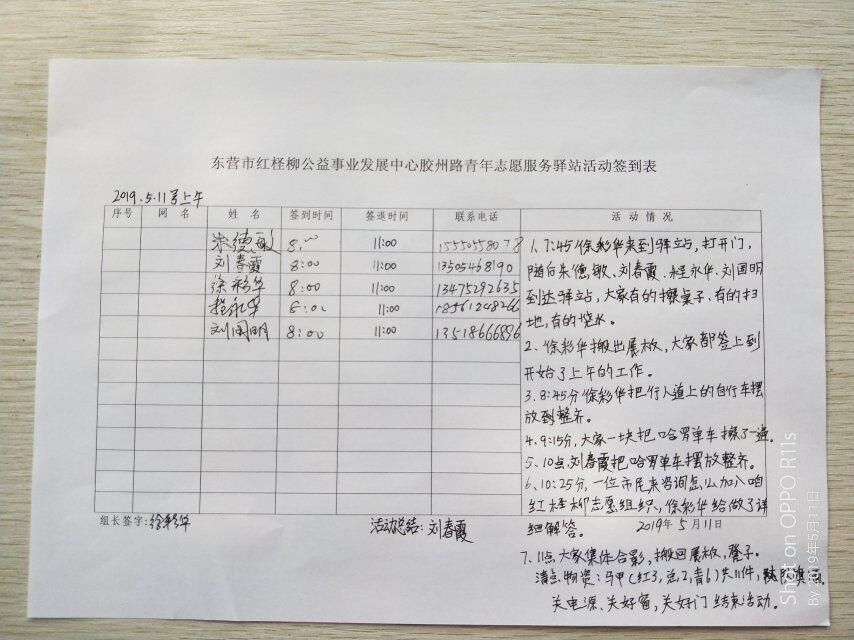 东营市红柽柳公益事业发展中心胶州路青年志愿服务驿站活动签到表
2019.5.11号上午
序号 网 名 姓 名 签到时间 签退时间 联系电话 活 动 情 况
朱德敏 8:00 11:00
刘春霞 8:00 11:00 13505468190
徐彩华 8:00 11:00 13475292635
程永华 8:00 11:00
刘国明 8:00 11:00
1、7:45徐彩华来到驿站,打开门,
随后朱德敏、刘春霞、程永华、刘国明
到达驿站,大家有的擦桌子、有的扫
地,有的接水。
2、徐彩华搬出展板,大家都签上到
开始了上午的工作。
3、8:45分徐彩华把行人道上的自行车摆
放到整齐。
4、9:15分,大家一块把哈罗单车擦了一遍。
5、10点刘春霞把哈罗单车摆放整齐。
6、10:25分,一位市民来咨询怎么加入咱
红柽柳志愿组织,徐彩华给做了详
细解答。
2019年5月11日
组长签字:徐彩华 活动总结:刘春霞
7、11点大家集体合影,搬回展板,凳子。
清点物资:马甲(红3,志2,青6)共11件,
关电源、关好窗,关好门结束活动。
Shot on OPPO R11s
By 2019年5月11日